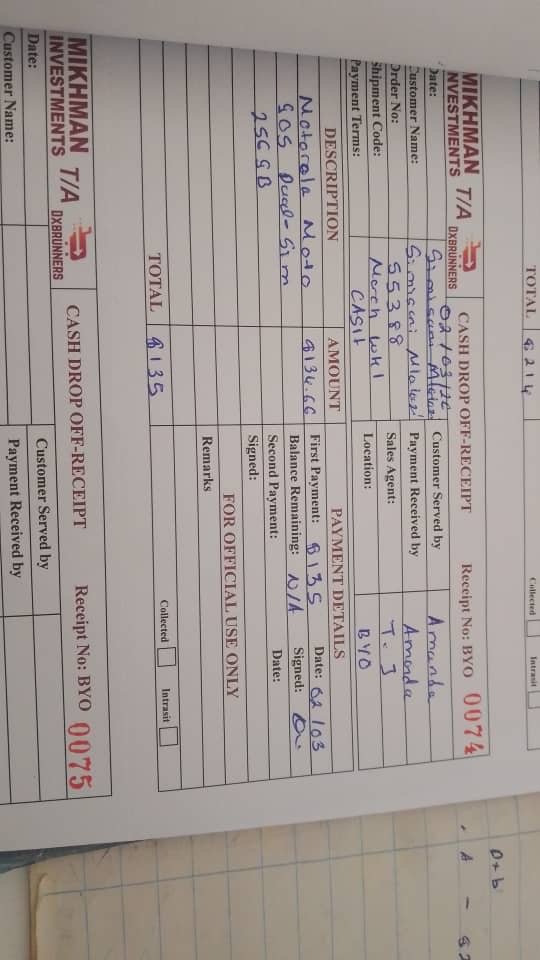 TOTAL $214
Collected Intrasit
MIKHMAN T/A
INVESTMENTS DXBRUNNERS
CASH DROP OFF-RECEIPT Receipt No: BYO 0074
Date: 02/03/26 Customer Served by Amanda
Customer Name: Simisani Payment Received by Amanda
Order No: 55388 Sales Agent: T.J
Shipment Code: March WK1 Location: BYO
Payment Terms: CASH
DESCRIPTION AMOUNT PAYMENT DETAILS
Motorola Moto $134.66 First Payment: $135 Date: 02/03
G05 Dual-Sim Balance Remaining: N/A Signed:
256GB Second Payment: Date:
Signed:
FOR OFFICIAL USE ONLY
Remarks
TOTAL $135 Collected Intrasit
MIKHMAN T/A
INVESTMENTS DXBRUNNERS
CASH DROP OFF-RECEIPT Receipt No: BYO 0075
Date: Customer Served by
Customer Name: Payment Received by
D+b
A - $2